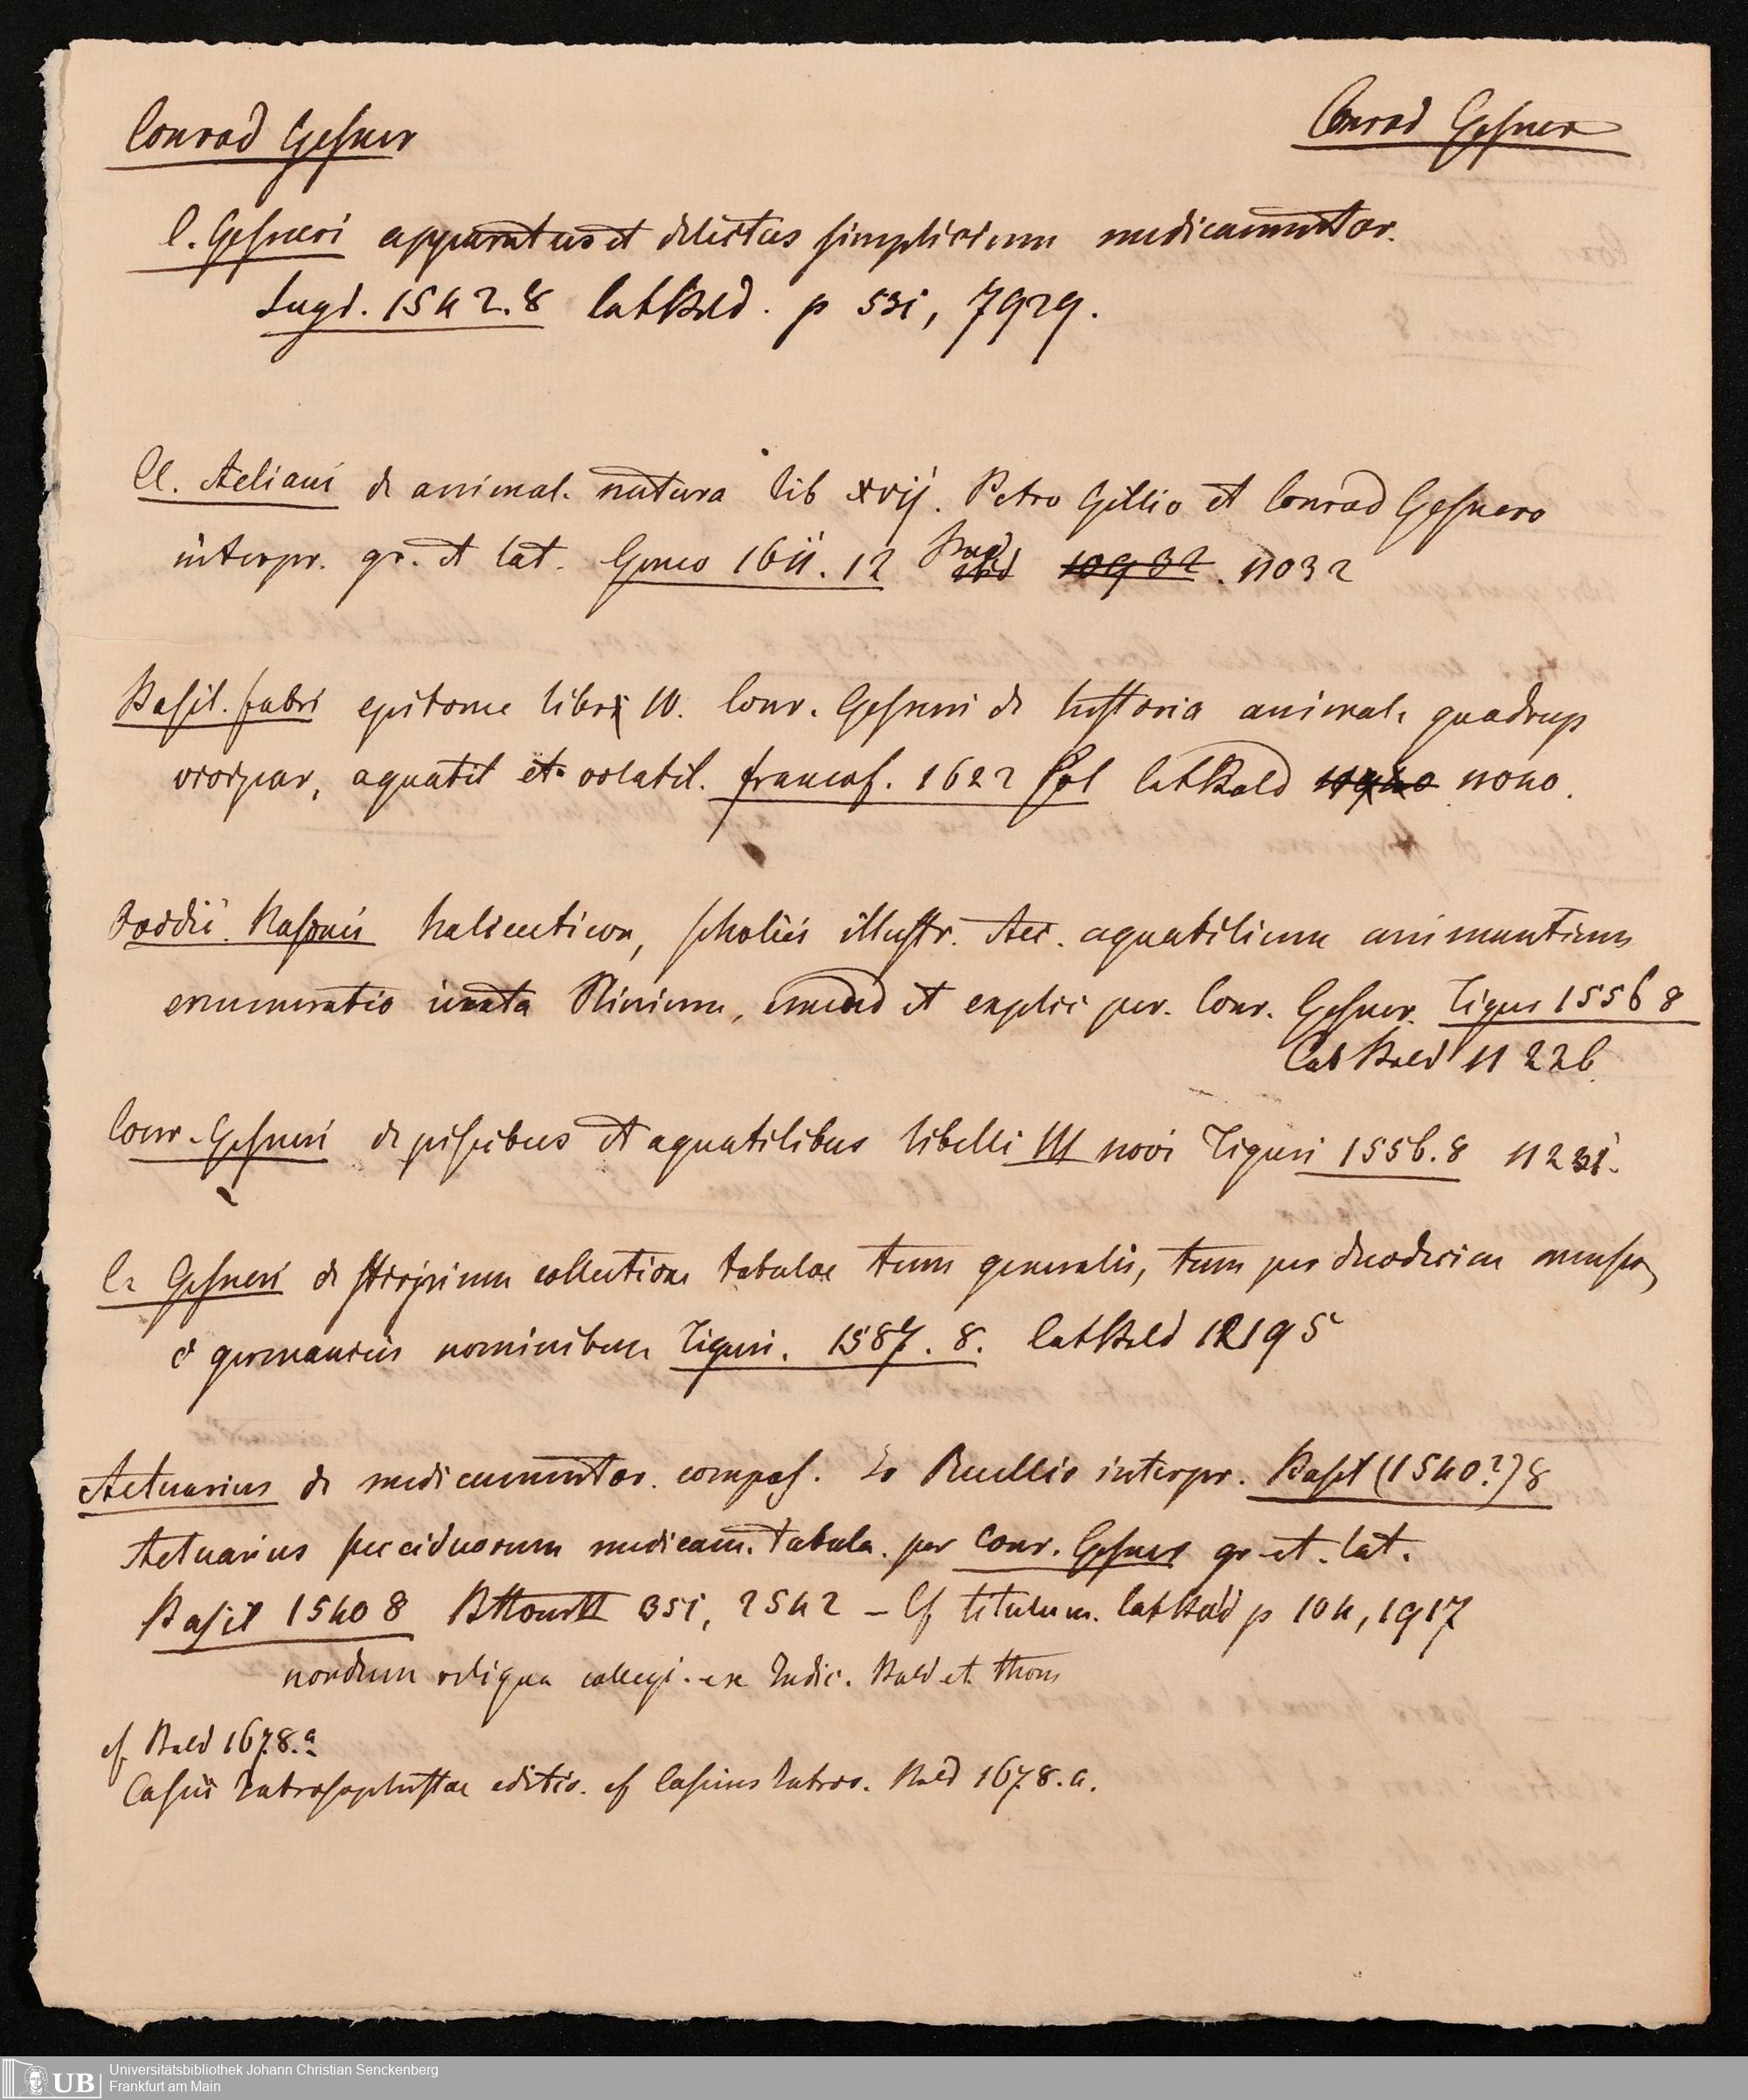 Conrad Gesner
Conrad Gesner
C. Gesneri apparatus et delectus simplicium medicamentor.
Lugd. 1542. 8 Cat Bald. p 531, 7929.
Cl. Aeliani de animal. natura lib XVII. Petro Gillio et Conrad Gesnero
interpr. gr. et lat. Genev 1611. 12 Bald 10932. 11032
Basil. fabri epitome libri IV. Conr. Gesneri de historia animal. quadrup
ovipar, aquatil et volatil. francof. 1622 fol Cat Bald 11040.
Ovidii Nasonis halieuticon, scholiis illustr. Acc. aquatilium animantium
enumeratio iuxta Plinium, emend et explic per. Conr. Gesner. Tigur 1556 8
Cat Bald 11226
Conr. Gesneri de piscibus et aquatilibus libelli III novi Tiguri 1556. 8 11231.
C. Gesneri de stirpium collectione tabulae tum generalis, tum per duodecim menses,
c germanicis nominibus Tiguri. 1587. 8. Cat Bald 12195
Actuarius de medicamentor. compos. Io Ruellio interpr. Basil (1540?) 8
Actuarius succiduorum medicam. tabula. per Conr. Gesner gr. et. lat.
Basil 1540 8 351, 2542 – Cf titulum. Cat Bald p 104, 1917
nondum reliqua collegi. ex Indic. Bald et. Thom
cf Bald 1678. a
Casii Iatrosophistae editio. cf Casius Iatros. Bald 1678. a.
Universitätsbibliothek Johann Christian Senckenberg
Frankfurt am Main
UB